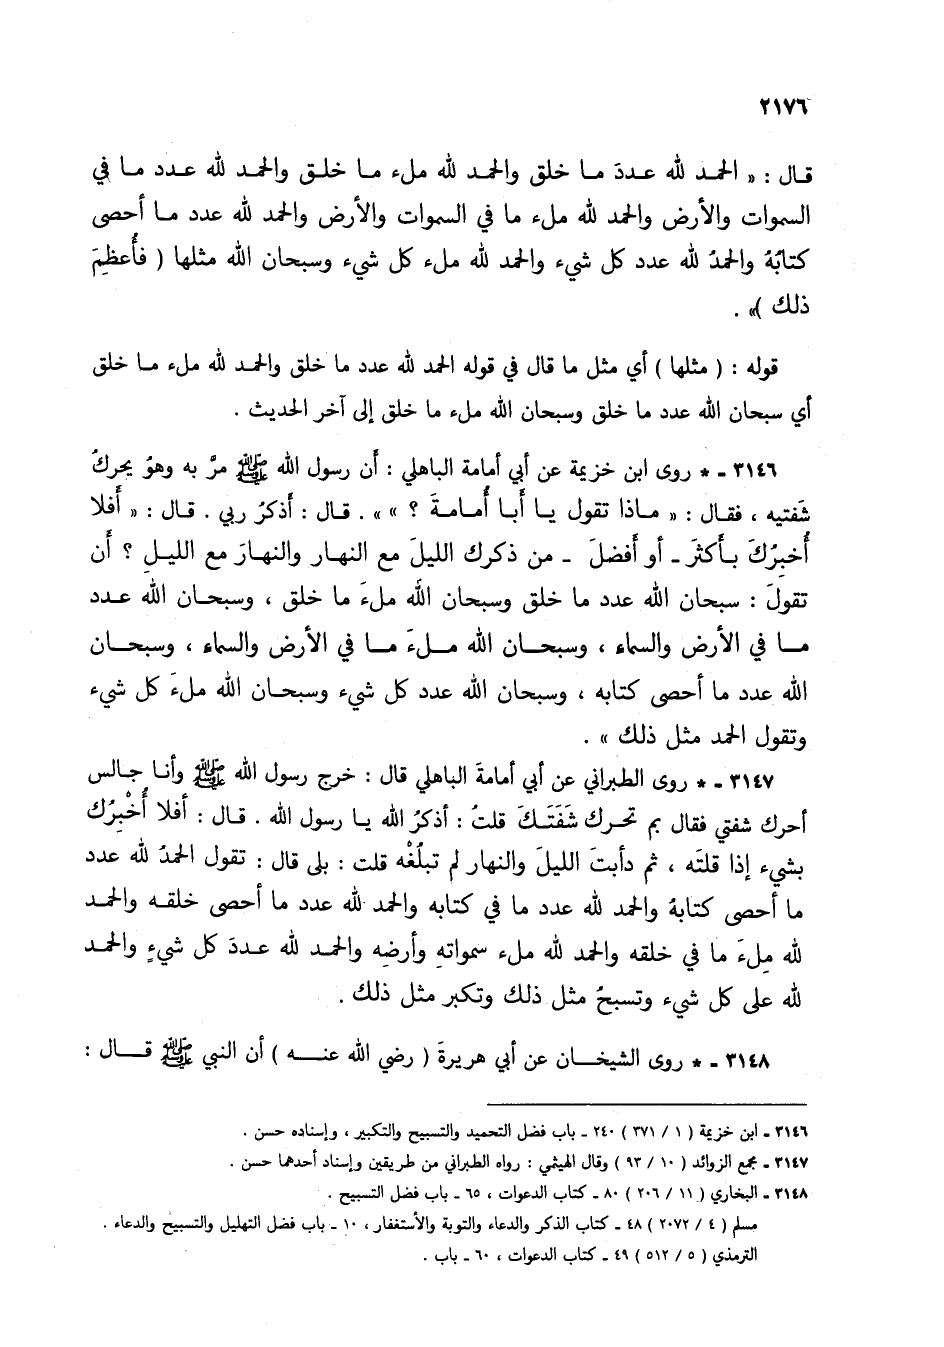 ٢١٧٦
قال : « الحمد لله عددَ ما خلق والحمد لله ملء ما خلق والحمد لله عدد ما في
السموات والأرض والحمد لله ملء ما في السموات والأرض والحمد لله عدد ما أحصى
كتابُهُ والحمدُ لله عدد كل شيء والحمد لله ملء كل شيء وسبحان الله مثلها ( فأَعظِمَ
ذلك )» .
قوله : ( مثلها ) أي مثل ما قال في قوله الحمد لله عدد ما خلق والحمد لله ملء ما خلق
أي سبحان الله عدد ما خلق وسبحان الله ملء ما خلق إلى آخر الحديث .
٣١٤٦ - * روى ابن خزيمة عن أبي أمامة الباهلي : أن رسول الله ﷺ مرَّ به وهوُ يحركُ
شفتيه ، فقال : « ماذا تقول يا أبا أُمامةَ ؟ » » . قال : أذكرُ ربي . قال : « أفلا
أُخبِرُكَ بأكثَرَ - أو أفضلَ - من ذكرك الليلَ مع النهار والنهارَ مع الليلِ ؟ أن
تقولَ : سبحان الله عدد ما خلق وسبحان اللهِ ملءَ ما خلق ، وسبحان الله عدد
ما في الأرض والسماء ، وسبحان الله ملءَ ما في الأرض والسماء ، وسبحان
الله عدد ما أحصى كتابه ، وسبحان الله عدد كل شيء وسبحان الله ملءَ كل شيء
وتقول الحمد مثل ذلك » .
٣١٤٧ - * روى الطبراني عن أبي أمامةَ الباهلي قال : خرج رسول الله ﷺ وأنا جالس
أحرك شفتي فقال بم تحرك شَفَتَكَ قلتُ : أذكرُ الله يا رسول الله . قال : أفلا أُخْبِرُك
بشيء إذا قلتَه ، ثم دأبتَ الليلَ والنهار لم تبلُغْه قلت : بلى قال : تقول الحمدُ لله عدد
ما أحصى كتابهُ والحمد لله عدد ما في كتابه والحمد لله عدد ما أحصى خلقه والحمد
لله مِلءَ ما في خلقه والحمد لله ملء سمواتهِ وأرضِه والحمد لله عددَ كل شيءٍ والحمد
لله على كل شيء وتسبحُ مثل ذلك وتكبر مثل ذلك .
٣١٤٨ - * روى الشيخان عن أبي هريرةَ ( رضي الله عنه ) أن النبي ﷺ قال :
٣١٤٦ - ابن خزيمة ( ١ / ٣٧١ ) ٢٤٠ - باب فضل التحميد والتسبيح والتكبير ، وإسناده حسن .
٣١٤٧ - مجمع الزوائد ( ١٠ / ٩٣ ) وقال الهيثمي : رواه الطبراني من طريقين وإسناد أحدهما حسن .
٣١٤٨ - البخاري ( ١١ / ٢٠٦ ) ٨٠ - كتاب الدعوات ، ٦٥ - باب فضل التسبيح .
مسلم ( ٤ / ٢٠٧٢ ) ٤٨ - كتاب الذكر والدعاء والتوبة والأستغفار ، ١٠ - باب فضل التهليل والتسبيح والدعاء .
الترمذي ( ٥ / ٥١٢ ) ٤٩ - كتاب الدعوات ، ٦٠ - باب .